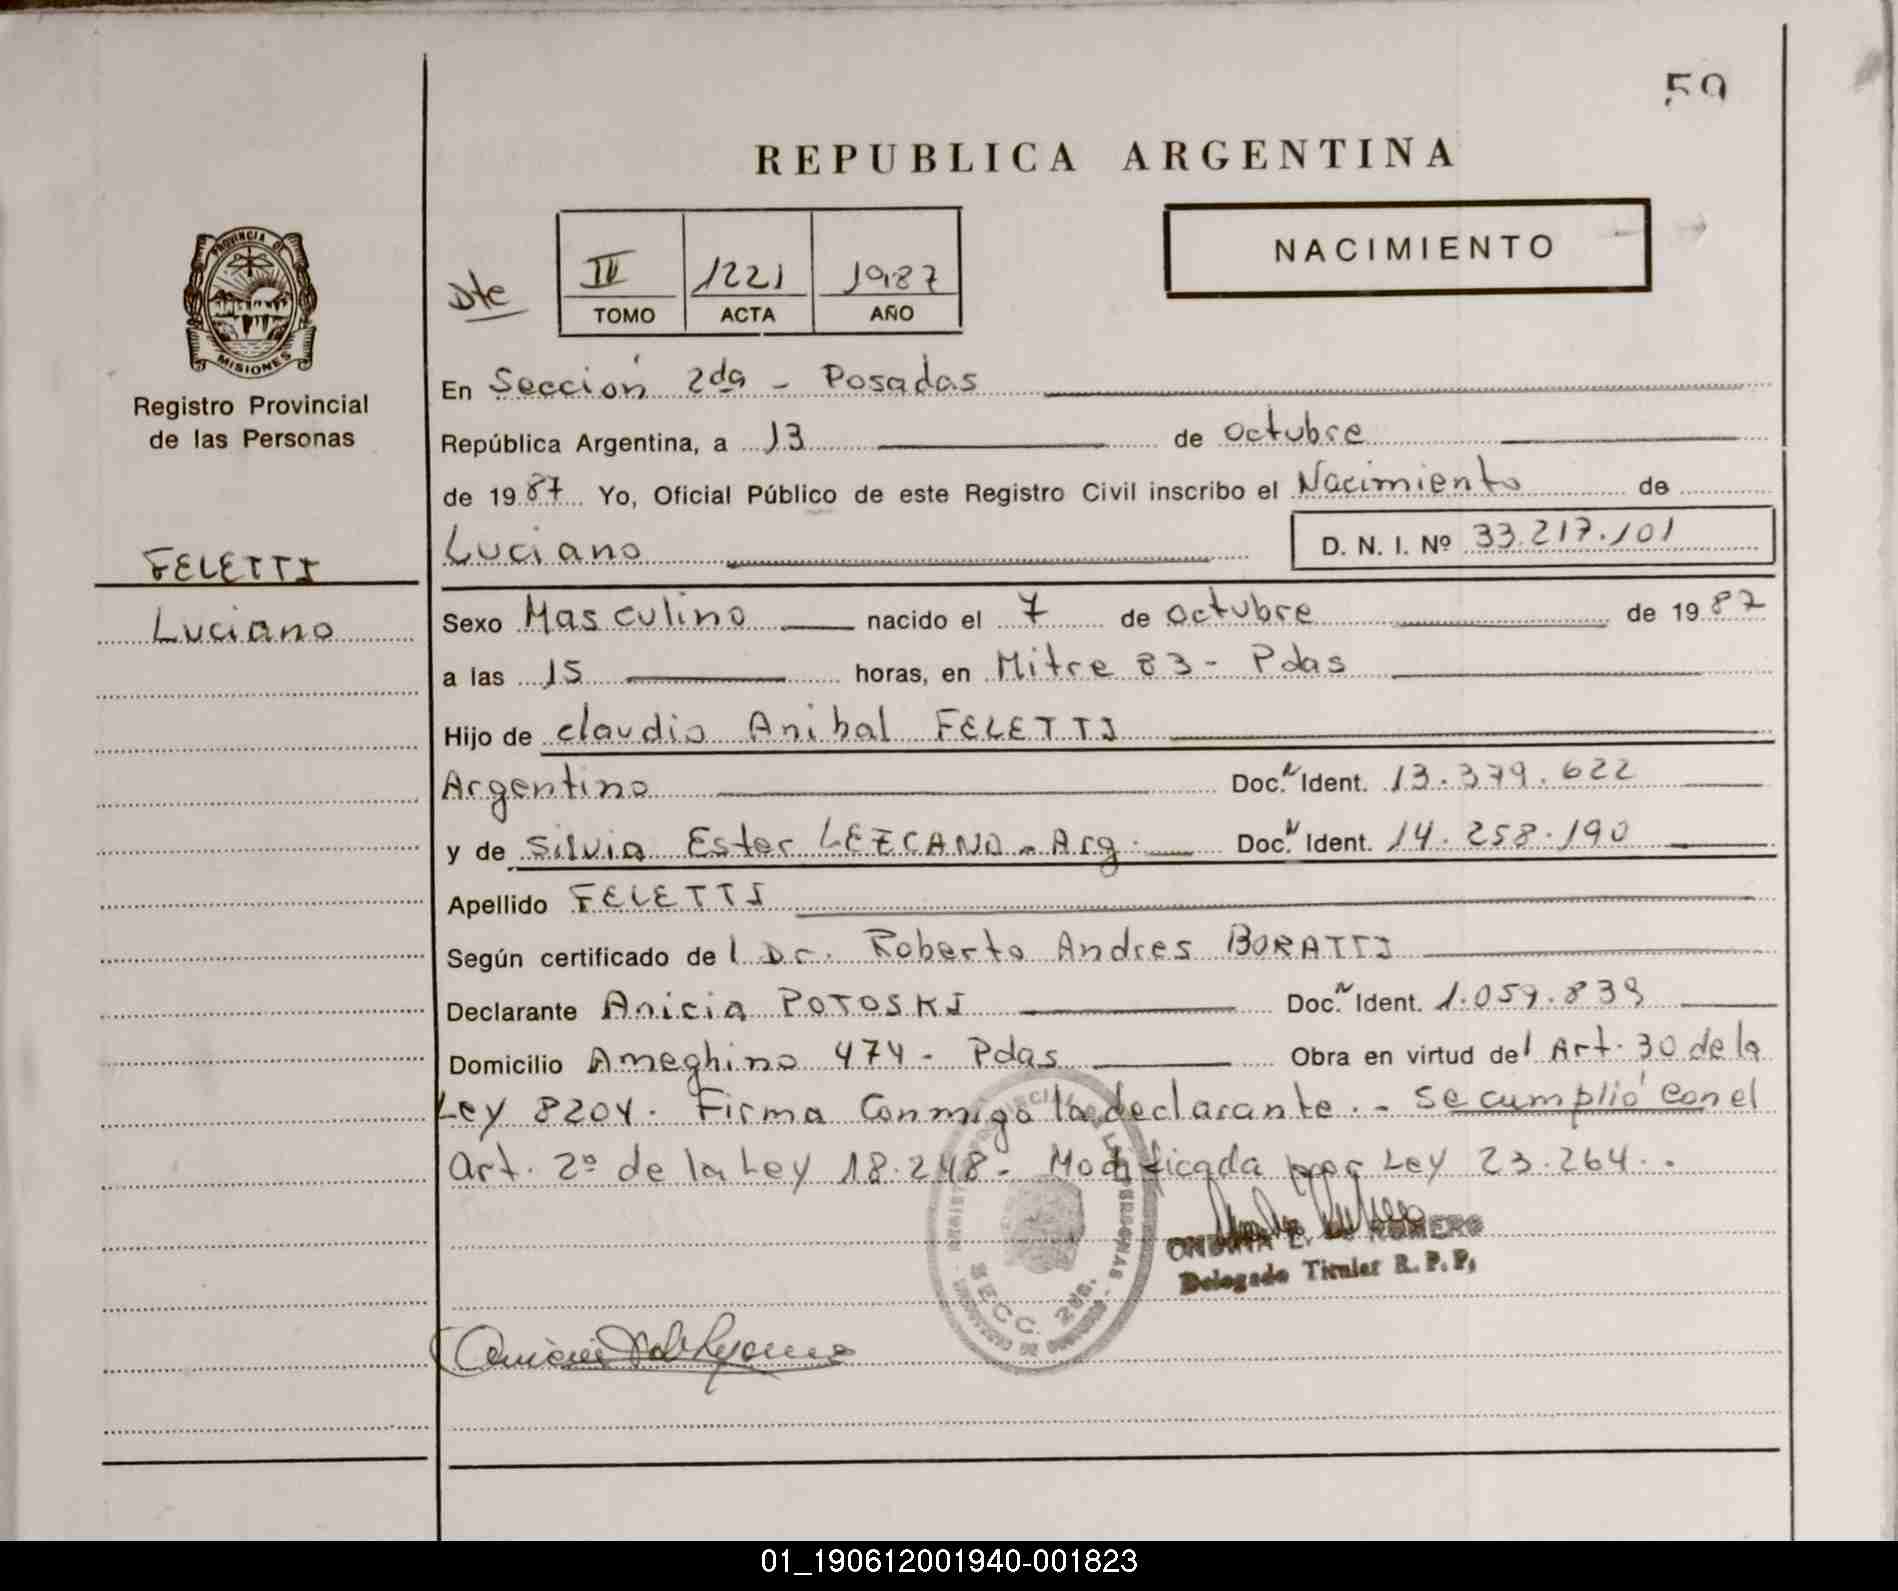 59
REPUBLICA ARGENTINA
NACIMIENTO
PROVINCIA DE
MISIONES
Registro Provincial
de las Personas
Dte
III 1221 1987
TOMO ACTA AÑO
En Sección 2da - Posadas
República Argentina, a 13 de octubre
de 1987 Yo, Oficial Público de este Registro Civil inscribo el Nacimiento de
Luciano D. N. I. Nº 33.217.101
FELETTI
Luciano
Sexo Masculino nacido el 7 de octubre de 1987
a las 15 horas, en Mitre 83 - Pdas
Hijo de claudio Anibal FELETTI
Argentino Doc. N Ident. 13.379.622
y de Silvia Ester LEZCANO - Arg. Doc. N Ident. 14.258.190
Apellido FELETTI
Según certificado del Dr. Roberto Andres BORATTI
Declarante Anicia POTOSKI Doc. N Ident. 1.059.839
Domicilio Ameghino 474 - Pdas Obra en virtud del Art. 30 de la
Ley 8204. Firma Conmigo la declarante. - Se cumplió con el
Art. 2º de la Ley 18.248 - Modificada por Ley 23.264.
SECC. 2da.
ONDINA E. DE ROMERO
Delegado Titular R. P. P.
01_190612001940-001823